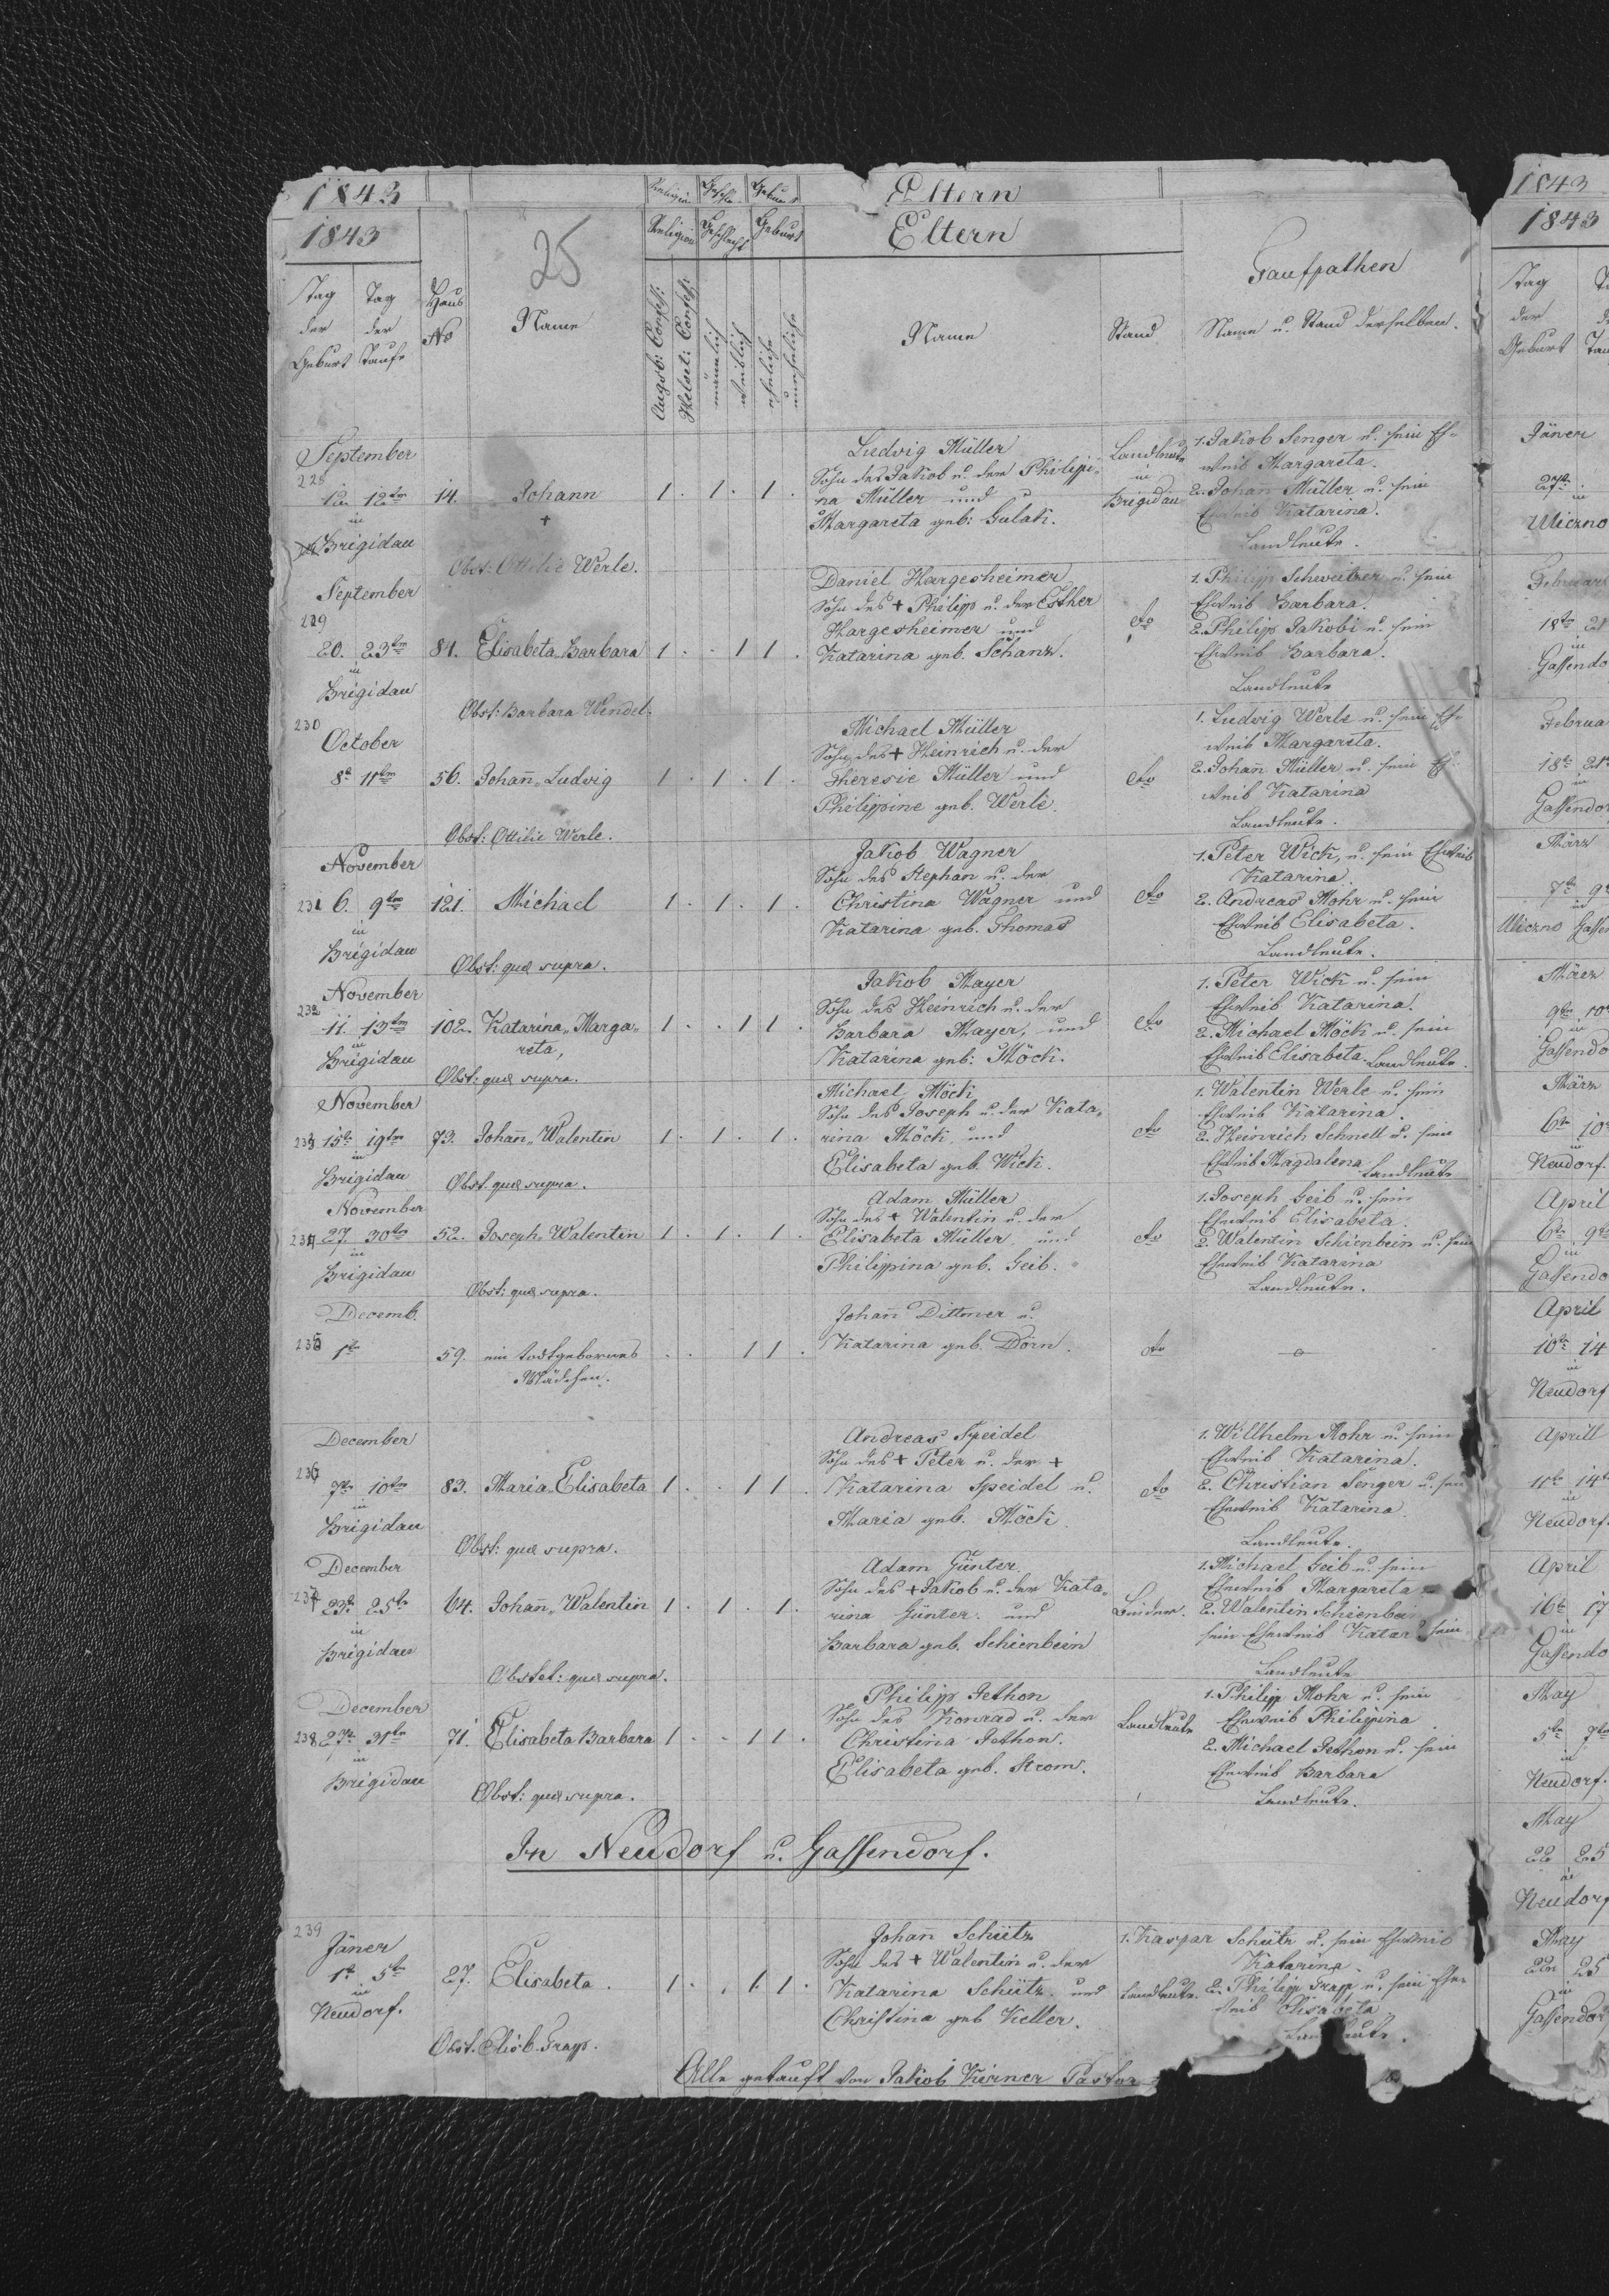 1843
Religion Geschle. Geburt
Eltern
1843
25
Religion Geschlecht Geburt
Eltern
Taufpathen
Tag der Geburt
Tag der Taufe
Haus No
Name
Augsb: Confess:
Helvet: Confess:
männlich
weiblich
eheliche
uneheliche
Name
Stand
Name u. Stand derselben.
September
228
12. 12ten 14. Johann 1. 1. 1.
in
Brigidau
+
Obst: Ottilie Werle.
Ludwig Müller
Sohn des Jakob u. der Philippi-
na Müller und
Margareta geb: Gulak.
Landleute
in
Brigidau
1. Jakob Senger u. sein Eh-
weib Margareta.
2. Johañ Müller u. sein
Ehweib Katarina.
Landleute.
September
229
20. 23ten 81. Elisabeta Barbara 1. . 1 1.
in
Brigidau
Obst: Barbara Wendel.
Daniel Hargesheimer
Sohn des + Philipp u. der Esther
Hargesheimer und
Katarina geb. Schanz.
do
1. Philipp Schweitzer u. sein
Ehweib Barbara.
2. Philipp Jakobi u. sein
Ehweib Barbara.
Landleute
230
October
8t 11ten 56. Johañ Ludwig 1. 1. 1.
Obst: Ottilie Werle.
Michael Müller
Sohn des + Heinrich u. der
Theresie Müller und
Philippine geb. Werle.
do
1. Ludwig Werle u. sein Eh-
weib Margareta.
2. Johañ Müller u. sein Eh-
weib Katarina
Landleute.
November
231 6. 9ten 121. Michael 1. 1. 1.
in
Brigidau
Obst: quæ supra.
Jakob Wagner
Sohn des Stephan u. der
Christina Wagner und
Katarina geb. Thomas
do
1. Peter Wick, u. sein Ehweib
Katarina.
2. Andreas Mohr u. sein
Ehweib Elisabeta.
Landleute.
November
232
11. 13ten 102. Katarina Marga- 1. . 1 1.
reta,
in
Brigidau
Obst: quæ supra.
Jakob Mayer
Sohn des Heinrich u. der
Barbara Mayer, und
Katarina geb: Möck.
do
1. Peter Wick u. sein
Ehweib Katarina.
2. Michael Möck u. sein
Ehweib Elisabeta. Landleute.
November
233 15t 19ten 73. Johañ Walentin 1. 1. 1.
in
Brigidau
Obst. quæ supra.
Michael Möck
Sohn des Joseph u. der Kata-
rina Möck, und
Elisabeta geb. Wick.
do
1. Walentin Werle u. sein
Ehweib Katarina.
2. Heinrich Schnell u. sein
Ehweib Magdalena Landleute
November
234 27. 30ten 52. Joseph Walentin 1. 1. 1.
in
Brigidau
Obst: quæ supra.
Adam Müller
Sohn des + Walentin u. der
Elisabeta Müller, und
Philippina geb. Geib.
do
1. Joseph Geib u. sein
Eheweib Elisabeta.
2. Walentin Schienbein u. sein
Eheweib Katarina
Landleute.
Decemb.
235 1t 59. ein todtgebornes . . 1 1.
Mädchen.
Johañ Dittmer u.
Katarina geb. Dorn.
do
o
December
236
7ten 10ten 83. Maria Elisabeta 1. . 1 1.
in
Brigidau
Obst: quæ supra.
Andreas Speidel
Sohn des + Peter u. der +
Katarina Speidel u.
Maria geb. Möck.
do
1. Willhelm Mohr u. sein
Ehweib Katarina.
2. Christian Senger u. sein
Eheweib Katarina.
Landleute.
December
237 23t 25t 64. Johañ Walentin 1. 1. 1.
in
Brigidau
Obstet: quæ supra.
Adam Günter.
Sohn des + Jakob u. der Kata-
rina Günter und
Barbara geb. Schienbein
Binder.
1. Michael Geib u. sein
Eheweib Margareta
2. Walentin Schienbei
sein Eheweib Katar
Landleute
December
238 27t 31ten 71. Elisabeta Barbara 1. . 1 1.
in
Brigidau
Obst: quæ supra.
Philipp Jethon
Sohn des Konrad u. der
Christina Jethon.
Elisabeta geb. Strom.
Landleute
1. Philipp Mohr u. sein
Eheweib Philippina
2. Michael Jethon u. sein
Eheweib Barbara
Landleute.
In Neudorf u. Gassendorf.
239
Jäner
1t 5ten 27. Elisabeta. 1. . 1 1.
in
Neudorf.
Obst. Elisb. Trapp.
Johañ Schütz
Sohn des + Walentin u. der
Katarina Schütz, und
Christina geb Keller.
Landleute.
1. Kaspar Schütz u. sein Ehweib
Katarina.
2. Philipp Trapp u. sein Ehe-
weib Elisabeta.
Landleute.
Alle getauft von Jakob Kirner Pastor
1843
1843
Tag
der
Geburt
Jäner
27ten
in
Ugiczno
Februar
18ten 21
in
Gassendo
Februa
18t 21
in
Gassendor
März
7ten 9
in
Ugiczno Gassen
März
9ten 10
in
Gassendo
März
6ten 10
in
Neudorf.
April
6ten 9
in
Gassendo
April
10ten 14
in
Neudorf
Aprill
11ten 14
in
Neudorf.
April
16t 17
in
Gassendo
May
5ten 7
in
Neudorf.
May
22 25
in
Neudorf
May
22 25
in
Gassendor